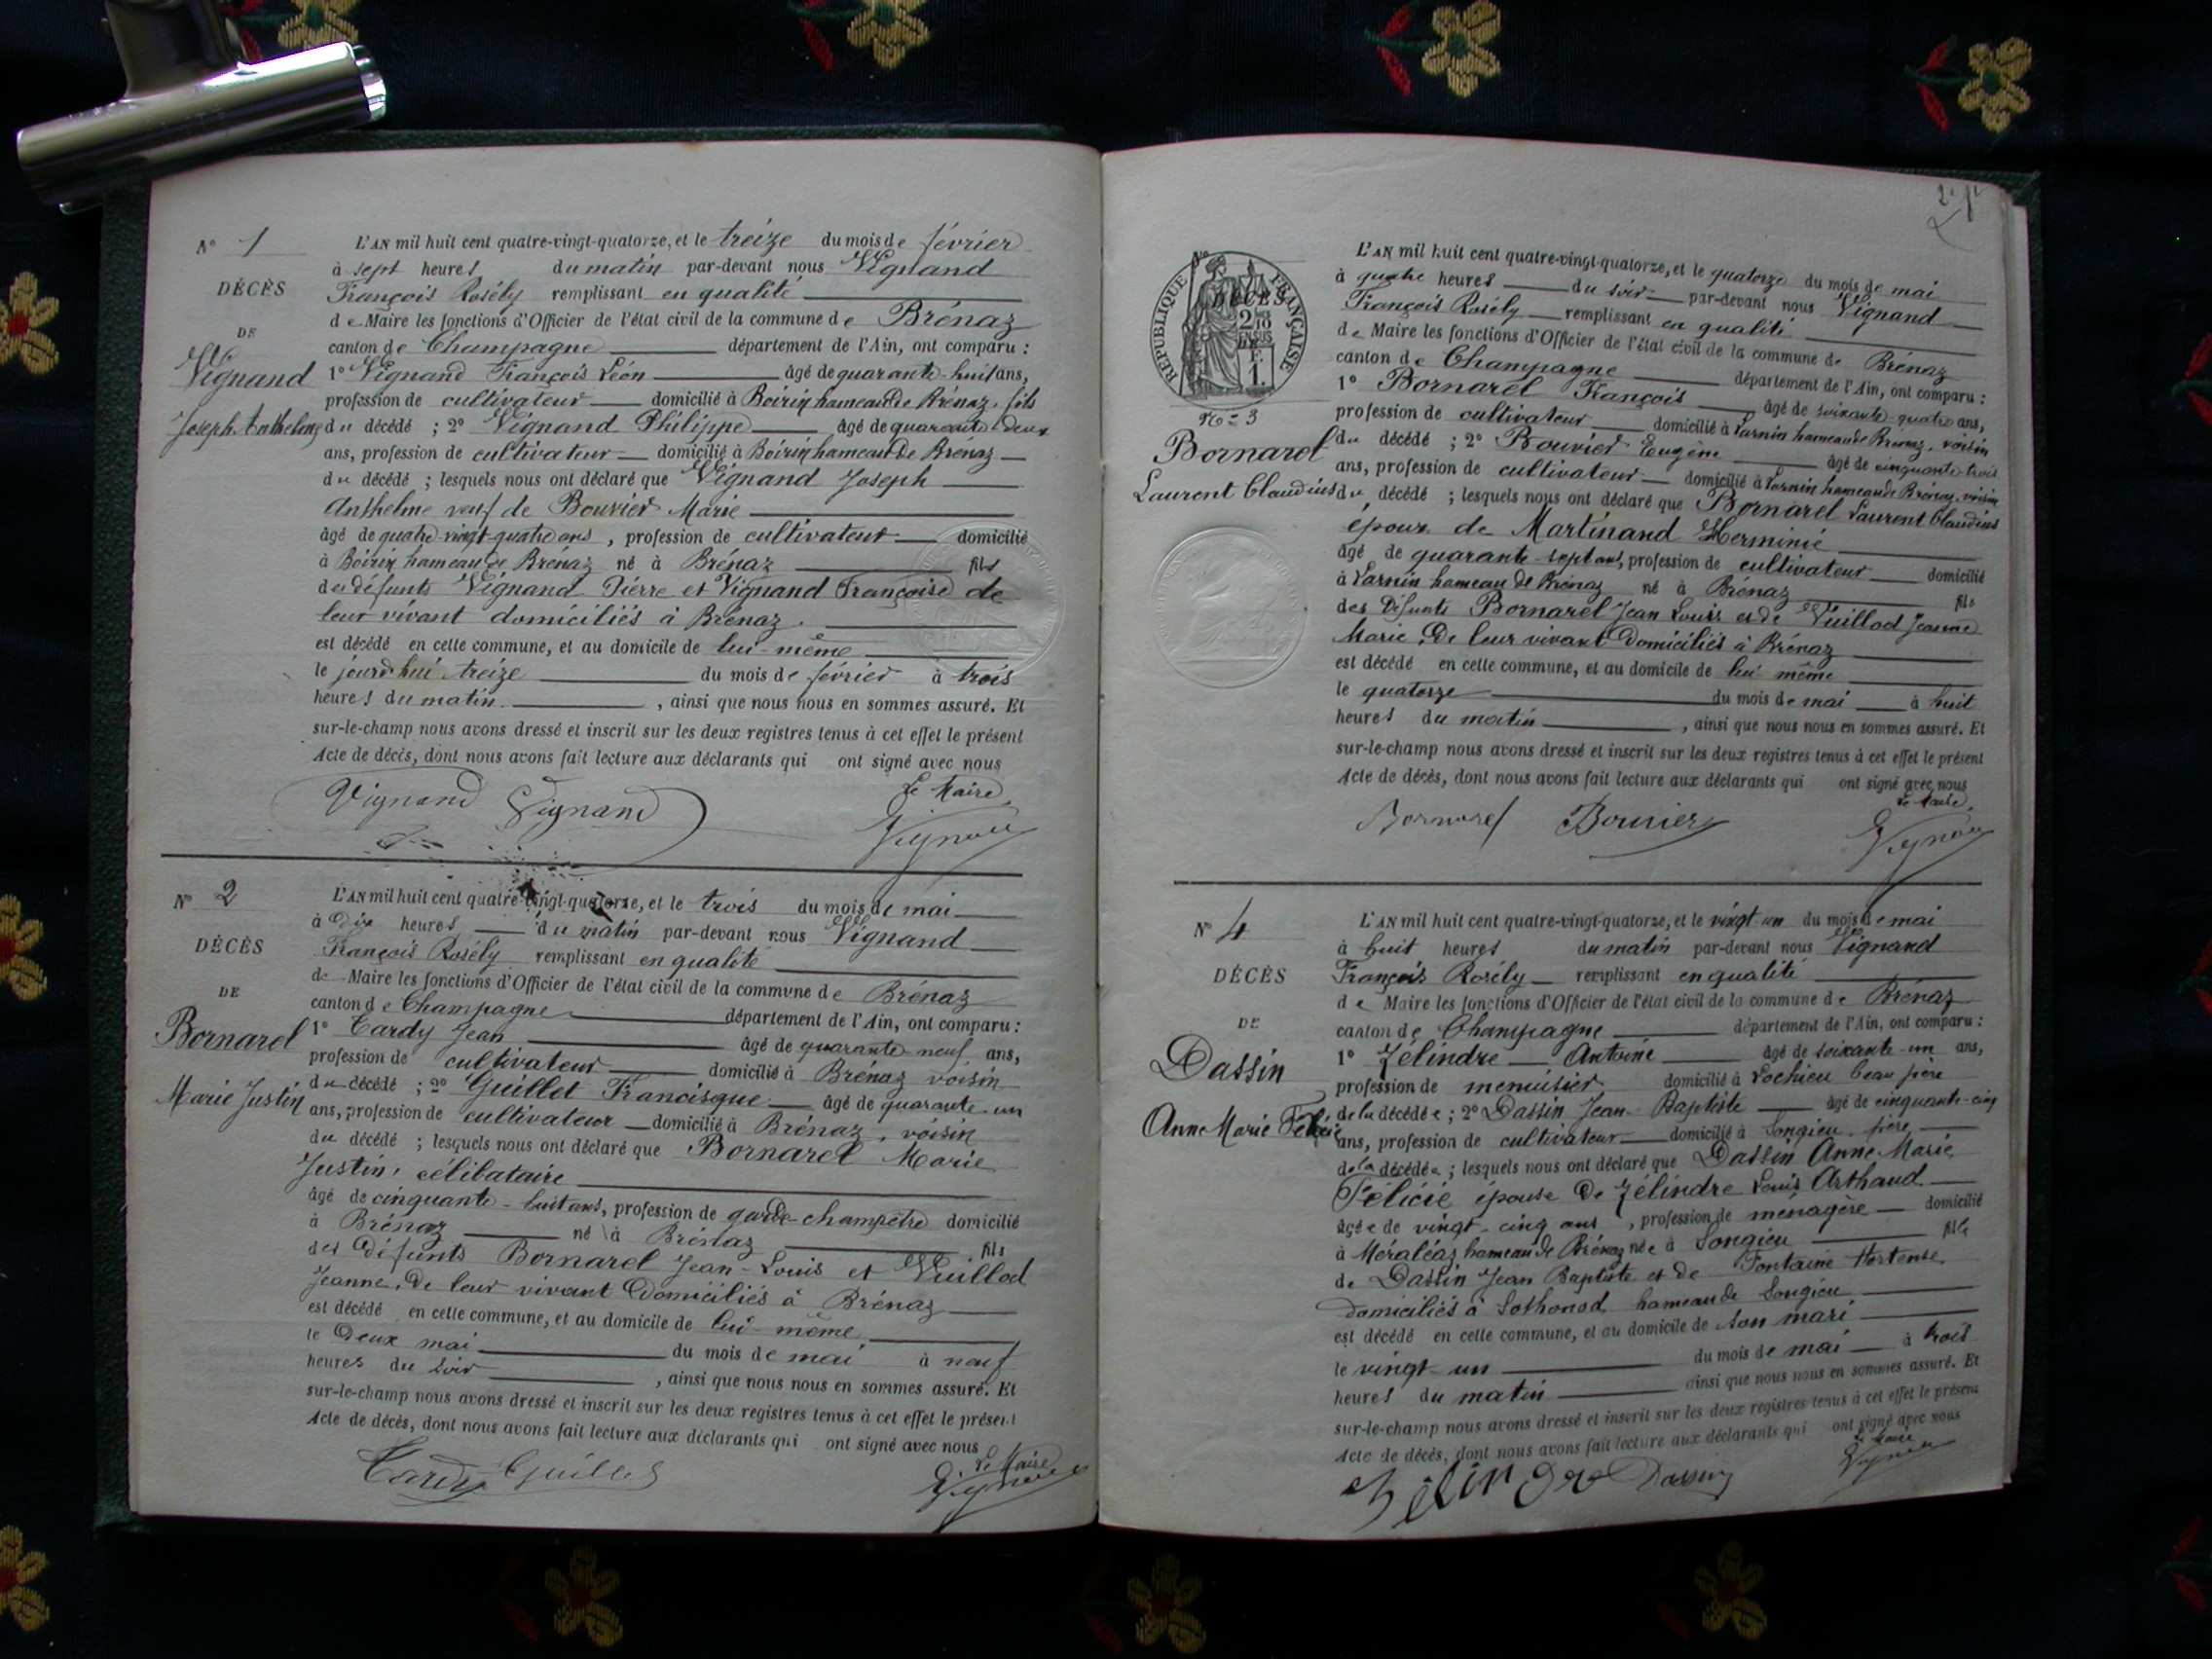 N° 1
DÉCÈS
DE
Vignand
Joseph Anthelme
L'AN mil huit cent quatre-vingt-quatorze, et le treize du mois de février
à sept heures du matin par-devant nous Vignand
François Rosély remplissant en qualité
de Maire les fonctions d'Officier de l'état civil de la commune de Brénaz
canton de Champagne département de l'Ain, ont comparu :
1° Vignand François Léon âgé de quarante-huit ans,
profession de cultivateur domicilié à Boirin hameau de Brénaz, fils
du décédé ; 2° Vignand Philippe âgé de quarante-deux
ans, profession de cultivateur domicilié à Boirin hameau de Brénaz
du décédé ; lesquels nous ont déclaré que Vignand Joseph
Anthelme veuf de Bouvier Marie
âgé de quatre-vingt-quatre ans, profession de cultivateur domicilié
à Boirin hameau de Brénaz né à Brénaz fils
des défunts Vignand Pierre et Vignand Françoise de
leur vivant domiciliés à Brénaz.
est décédé en cette commune, et au domicile de lui-même
le jourd'hui treize du mois de février à trois
heures du matin, ainsi que nous nous en sommes assuré. Et
sur-le-champ nous avons dressé et inscrit sur les deux registres tenus à cet effet le présent
Acte de décès, dont nous avons fait lecture aux déclarants qui ont signé avec nous
Le Maire,
Vignand Vignand Vignand
N° 2
DÉCÈS
DE
Bornarel
Marie Justin
L'AN mil huit cent quatre-vingt-quatorze, et le trois du mois de mai
à dix heures du matin par-devant nous Vignand
François Rosély remplissant en qualité
de Maire les fonctions d'Officier de l'état civil de la commune de Brénaz
canton de Champagne département de l'Ain, ont comparu :
1° Tardy Jean âgé de quarante-neuf ans,
profession de cultivateur domicilié à Brénaz voisin
du décédé ; 2° Guillet Francisque âgé de quarante-un
ans, profession de cultivateur domicilié à Brénaz, voisin
du décédé ; lesquels nous ont déclaré que Bornarel Marie
Justin, célibataire
âgé de cinquante-huit ans, profession de garde-champêtre domicilié
à Brénaz né à Brénaz fils
des défunts Bornarel Jean-Louis et Vuillod
Jeanne, de leur vivant domiciliés à Brénaz
est décédé en cette commune, et au domicile de lui-même
le deux mai du mois de mai à neuf
heures du soir, ainsi que nous nous en sommes assuré. Et
sur-le-champ nous avons dressé et inscrit sur les deux registres tenus à cet effet le présent
Acte de décès, dont nous avons fait lecture aux déclarants qui ont signé avec nous
Le Maire
Tardy Guillet Vignand
RÉPUBLIQUE FRANÇAISE
DÉCÈS
2/10
EN SUS
F.
1.
N° 3
Bornarel
Laurent Claudius
L'AN mil huit cent quatre-vingt-quatorze, et le quatorze du mois de mai
à quatre heures du soir par-devant nous Vignand
François Rosély remplissant en qualité
de Maire les fonctions d'Officier de l'état civil de la commune de Brénaz
canton de Champagne département de l'Ain, ont comparu :
1° Bornarel François âgé de soixante-quatre ans,
profession de cultivateur domicilié à Larnin hameau de Brénaz, voisin
du décédé ; 2° Bouvier Eugène âgé de cinquante-trois
ans, profession de cultivateur domicilié à Larnin hameau de Brénaz, voisin
du décédé ; lesquels nous ont déclaré que Bornarel Laurent Claudius
époux de Martinand Herminie
âgé de quarante-sept ans, profession de cultivateur domicilié
à Larnin hameau de Brénaz né à Brénaz fils
des défunts Bornarel Jean Louis et de Vuillod Jeanne
Marie, de leur vivant domiciliés à Brénaz
est décédé en cette commune, et au domicile de lui même
le quatorze du mois de mai à huit
heures du matin, ainsi que nous nous en sommes assuré. Et
sur-le-champ nous avons dressé et inscrit sur les deux registres tenus à cet effet le présent
Acte de décès, dont nous avons fait lecture aux déclarants qui ont signé avec nous
Le Maire,
Bornarel Bouvier Vignand
N° 4
DÉCÈS
DE
Dassin
Anne Marie Félicie
L'AN mil huit cent quatre-vingt-quatorze, et le vingt-un du mois de mai
à huit heures du matin par-devant nous Vignand
François Rosély remplissant en qualité
de Maire les fonctions d'Officier de l'état civil de la commune de Brénaz
canton de Champagne département de l'Ain, ont comparu :
1° Zélindre Antoine âgé de soixante-un ans,
profession de menuisier domicilié à Lochieu beau père
de la décédée ; 2° Dassin Jean-Baptiste âgé de cinquante-cinq
ans, profession de cultivateur domicilié à Songieu, père
de la décédée ; lesquels nous ont déclaré que Dassin Anne Marie
Félicie épouse de Zélindre Louis Arthaud
âgée de vingt-cinq ans, profession de ménagère domicilié
à Méraléaz hameau de Brénaz née à Songieu fille
de Dassin Jean Baptiste et de Fontaine Hortense
domiciliés à Sothonod hameau de Songieu
est décédé en cette commune, et au domicile de son mari
le vingt-un du mois de mai à trois
heures du matin ainsi que nous nous en sommes assuré. Et
sur-le-champ nous avons dressé et inscrit sur les deux registres tenus à cet effet le présent
Acte de décès, dont nous avons fait lecture aux déclarants qui ont signé avec nous
Le Maire
Zélindre Dassin Vignand